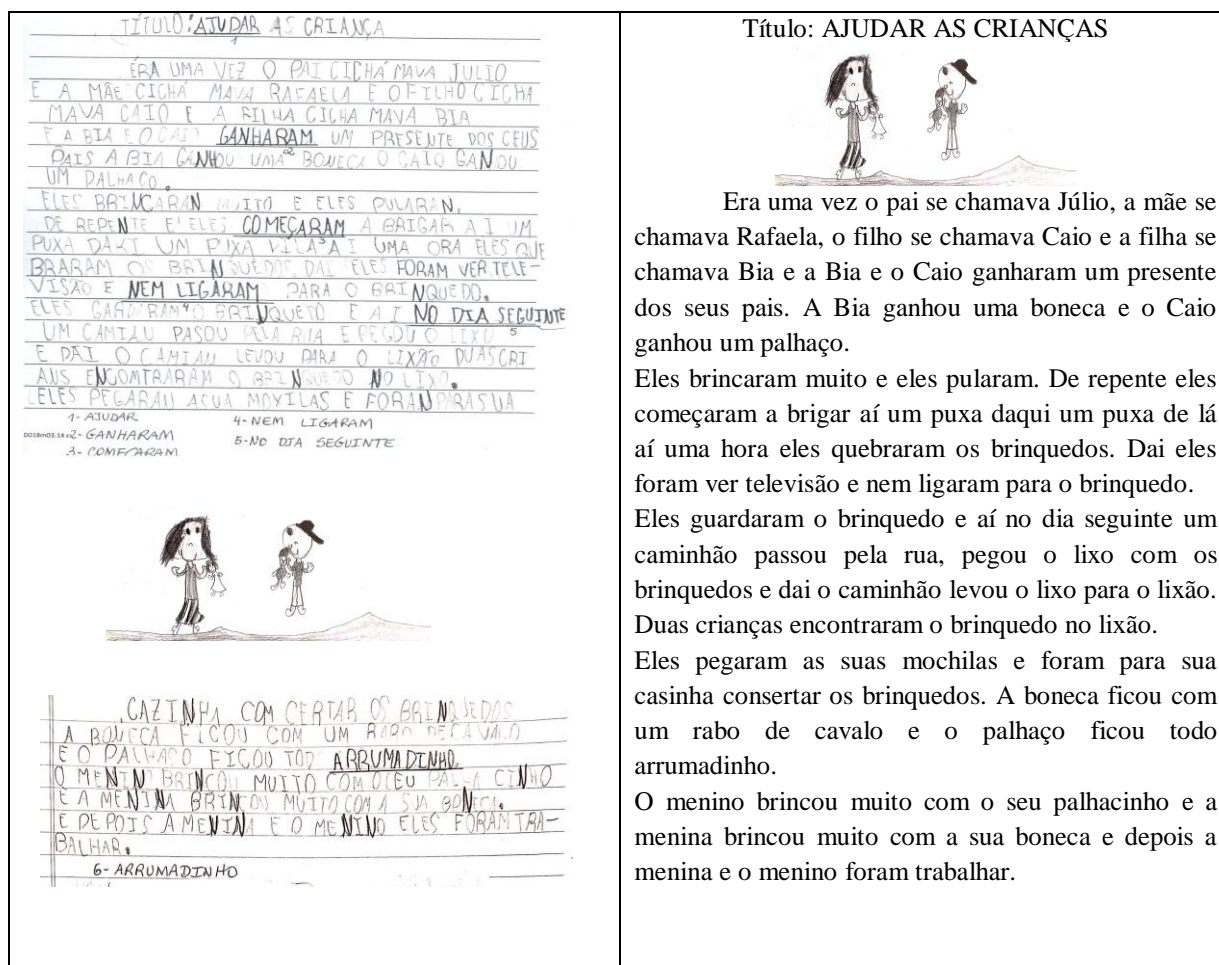 TÍTULO: AJUDAR AS CRIANÇA
1
ERA UMA VEZ O PAI CICHÁ MAVA JULIO
E A MÃE CICHÁ MAVA RAFAELA E O FILHO CICHA
MAVA CAIO E A FILHA CICHA MAVA BIA
E A BIA E O CAIO GANHARAM UM PRESENTE DOS CEUS
2
PAIS A BIA GANHOU UMA BONECA O CAIO GANOU
UM PALHAÇO.
ELES BRINCARAN MUITO E ELES PULARAN.
DE REPENTE E' ELES COMEÇARAM A BRIGAR A I UM
3
PUXA DAKI UM PUXA VILA A I UMA ORA ELES QUE
BRARAM OS BRINQUEDOS DAI ELES FORAM VER TELE-
VISÃO E NEM LIGARAM PARA O BRINQUEDO.
4
ELES GARDARAM O BRINQUETO E A I NO DIA SEGUINTE
5
UM CAMIAU PASOU PELA RUA E PEGOU O LIXO
E DAI O CAMIAU LEVOU PARA O LIXÃO DUAS CRI
ANS ENCOMTRARAM O BRINQUEDO NO LIXO.
ELES PEGARAU ASUA MOXILAS E FORAN PARA SUA
1- AJUDAR
2- GANHARAM
3- COMEÇARAM
4- NEM LIGARAM
5- NO DIA SEGUINTE
CAZINHA COM CERTAR OS BRINQUEDOS
A BONECA FICOU COM UM RABO DE CAVALO
E O PALHASO FICOU TOD ARRUMADINHO.
O MENINO BRINCOU MUITO COM O CEU PALHA CINHO
E A MENINA BRINCOU MUITO COM A SUA BONECA.
E DEPOIS A MENINA E O MENINO ELES FORAM TRA-
BALHAR.
6- ARRUMADINHO
Título: AJUDAR AS CRIANÇAS
Era uma vez o pai se chamava Júlio, a mãe se
chamava Rafaela, o filho se chamava Caio e a filha se
chamava Bia e a Bia e o Caio ganharam um presente
dos seus pais. A Bia ganhou uma boneca e o Caio
ganhou um palhaço.
Eles brincaram muito e eles pularam. De repente eles
começaram a brigar aí um puxa daqui um puxa de lá
aí uma hora eles quebraram os brinquedos. Dai eles
foram ver televisão e nem ligaram para o brinquedo.
Eles guardaram o brinquedo e aí no dia seguinte um
caminhão passou pela rua, pegou o lixo com os
brinquedos e dai o caminhão levou o lixo para o lixão.
Duas crianças encontraram o brinquedo no lixão.
Eles pegaram as suas mochilas e foram para sua
casinha consertar os brinquedos. A boneca ficou com
um rabo de cavalo e o palhaço ficou todo
arrumadinho.
O menino brincou muito com o seu palhacinho e a
menina brincou muito com a sua boneca e depois a
menina e o menino foram trabalhar.